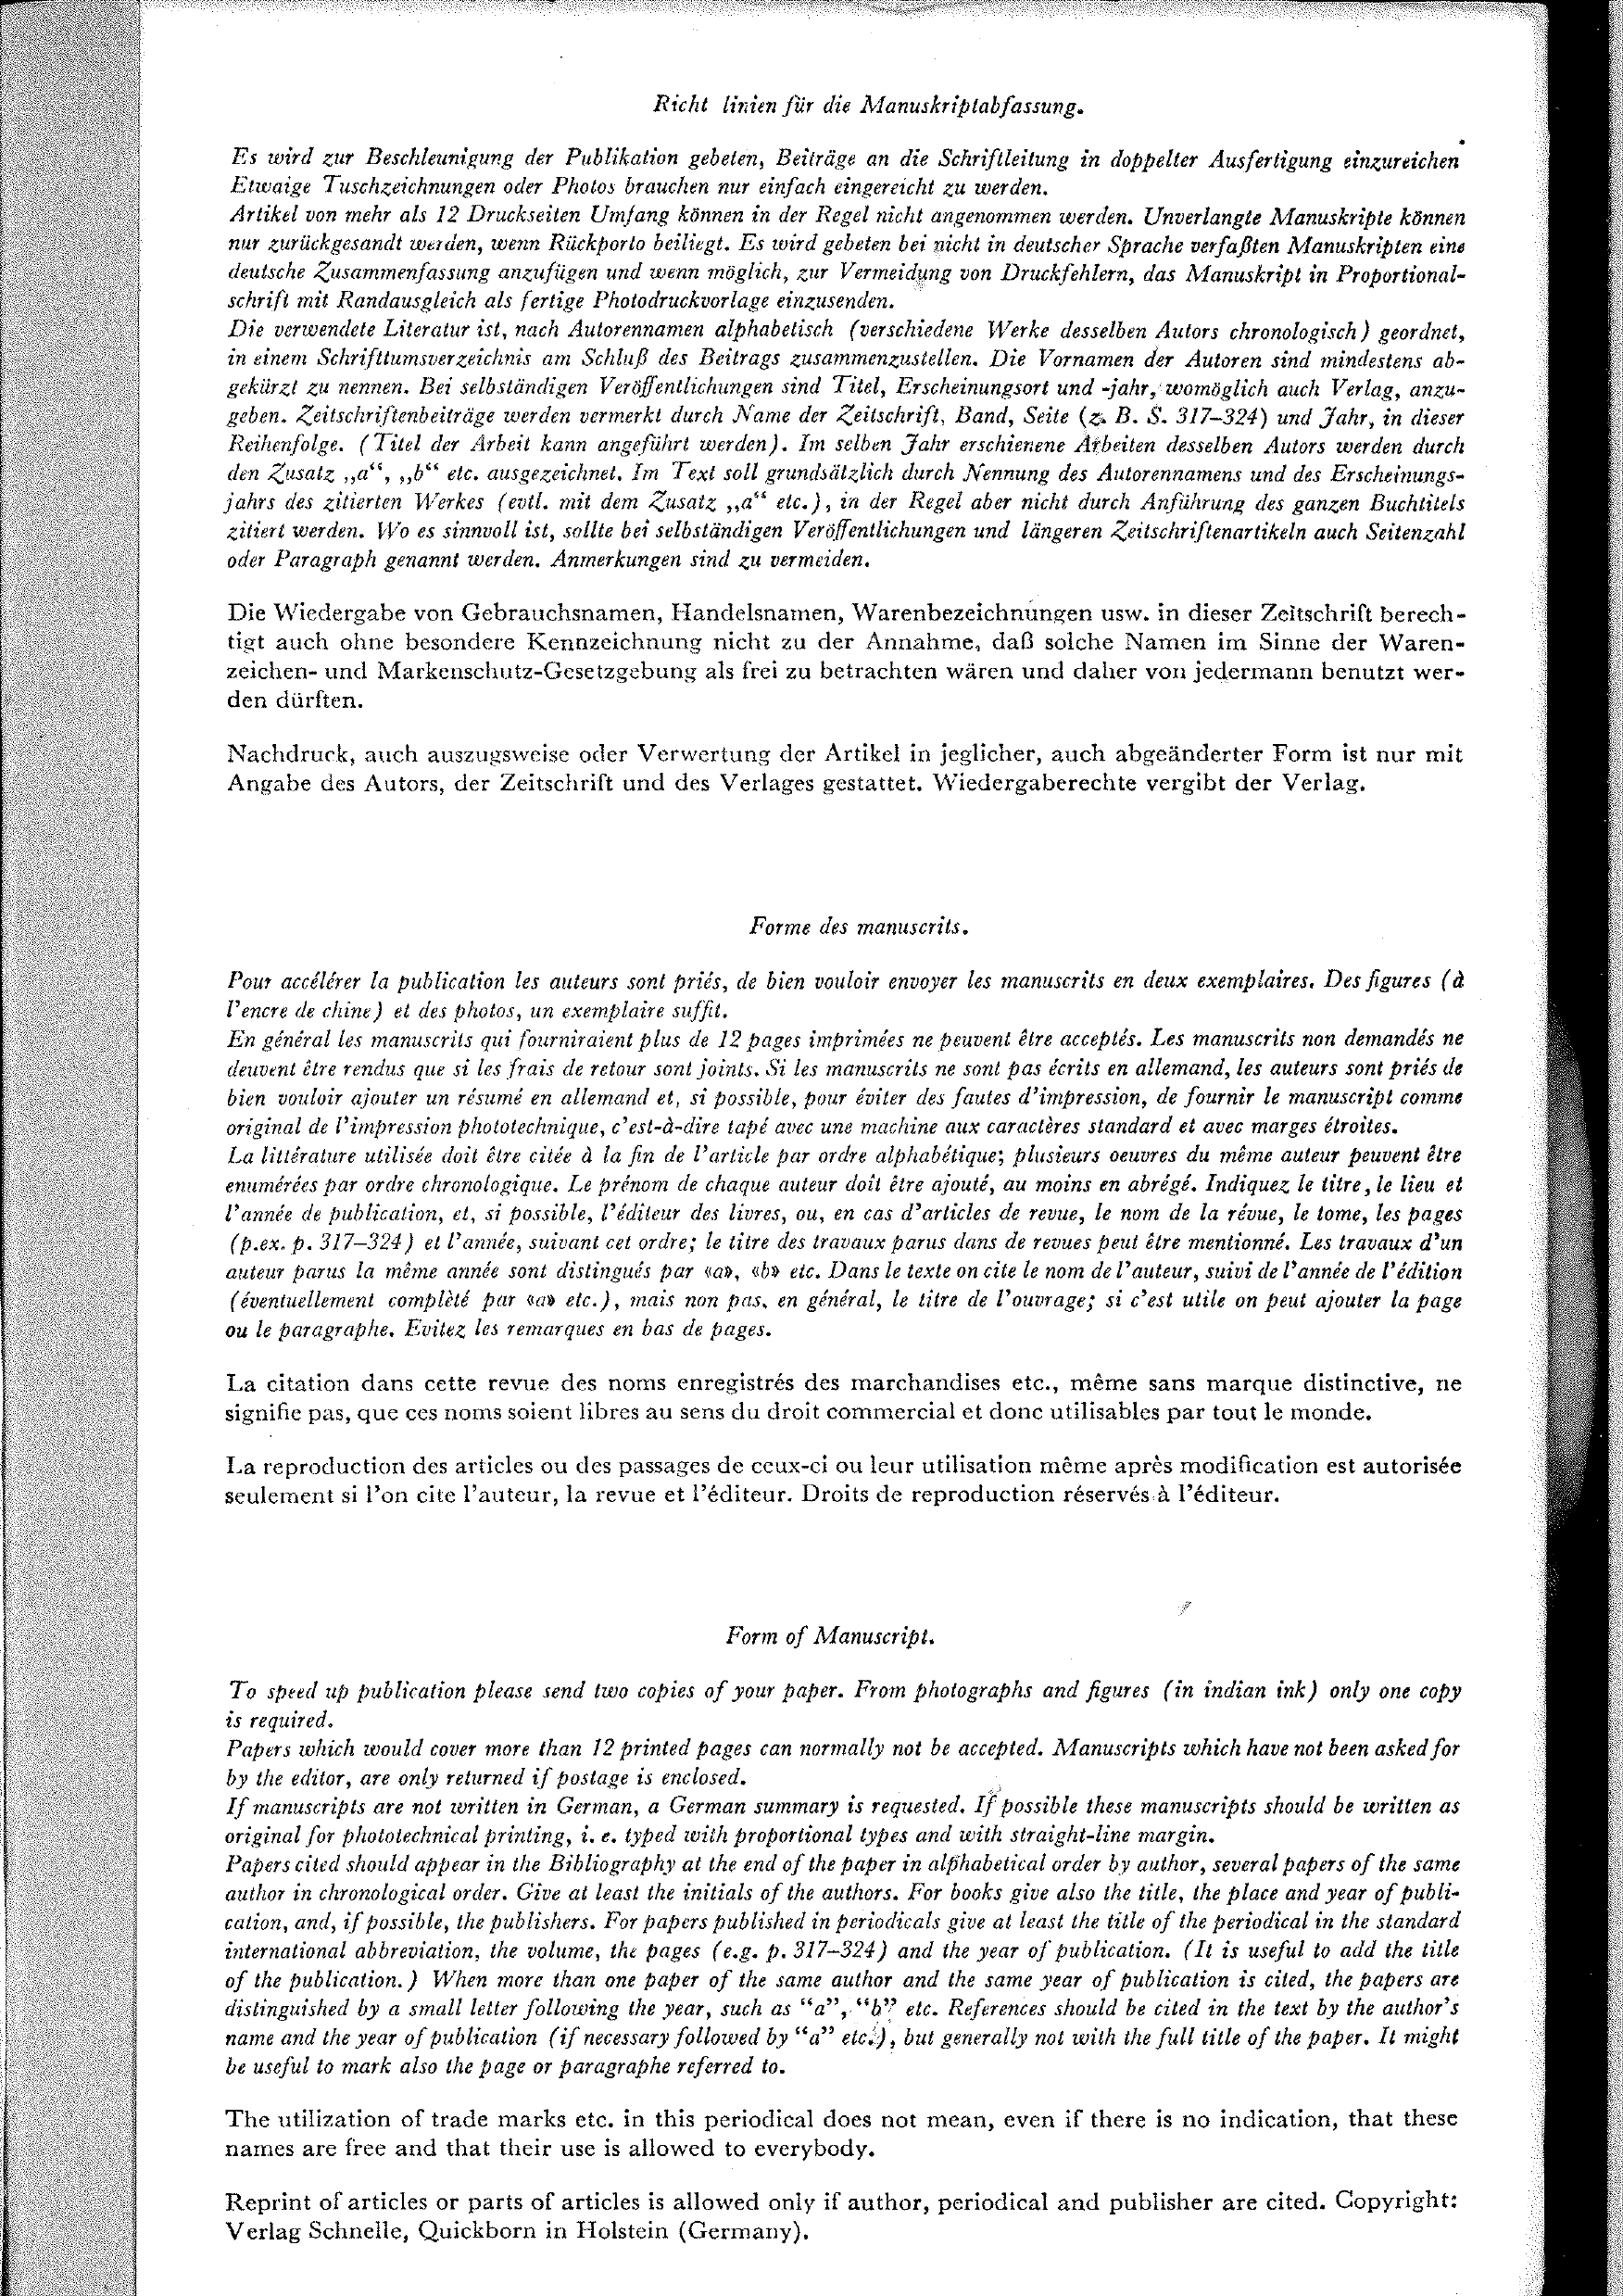 Richt linien für die Manuskriptabfassung.
Es wird zur Beschleunigung der Publikation gebeten, Beiträge an die Schriftleitung in doppelter Ausfertigung einzureichen
Etwaige Tuschzeichnungen oder Photos brauchen nur einfach eingereicht zu werden.
Artikel von mehr als 12 Druckseiten Umfang können in der Regel nicht angenommen werden. Unverlangte Manuskripte können
nur zurückgesandt werden, wenn Rückporto beiliegt. Es wird gebeten bei nicht in deutscher Sprache verfaßten Manuskripten eine
deutsche Zusammenfassung anzufügen und wenn möglich, zur Vermeidung von Druckfehlern, das Manuskript in Proportional-
schrift mit Randausgleich als fertige Photodruckvorlage einzusenden.
Die verwendete Literatur ist, nach Autorennamen alphabetisch (verschiedene Werke desselben Autors chronologisch) geordnet,
in einem Schrifttumsverzeichnis am Schluß des Beitrags zusammenzustellen. Die Vornamen der Autoren sind mindestens ab-
gekürzt zu nennen. Bei selbständigen Veröffentlichungen sind Titel, Erscheinungsort und -jahr, womöglich auch Verlag, anzu-
geben. Zeitschriftenbeiträge werden vermerkt durch Name der Zeitschrift, Band, Seite (z. B. S. 317–324) und Jahr, in dieser
Reihenfolge. (Titel der Arbeit kann angeführt werden). Im selben Jahr erschienene Arbeiten desselben Autors werden durch
den Zusatz „a“, „b“ etc. ausgezeichnet. Im Text soll grundsätzlich durch Nennung des Autorennamens und des Erscheinungs-
jahrs des zitierten Werkes (evtl. mit dem Zusatz „a“ etc.), in der Regel aber nicht durch Anführung des ganzen Buchtitels
zitiert werden. Wo es sinnvoll ist, sollte bei selbständigen Veröffentlichungen und längeren Zeitschriftenartikeln auch Seitenzahl
oder Paragraph genannt werden. Anmerkungen sind zu vermeiden.
Die Wiedergabe von Gebrauchsnamen, Handelsnamen, Warenbezeichnungen usw. in dieser Zeitschrift berech-
tigt auch ohne besondere Kennzeichnung nicht zu der Annahme, daß solche Namen im Sinne der Waren-
zeichen- und Markenschutz-Gesetzgebung als frei zu betrachten wären und daher von jedermann benutzt wer-
den dürften.
Nachdruck, auch auszugsweise oder Verwertung der Artikel in jeglicher, auch abgeänderter Form ist nur mit
Angabe des Autors, der Zeitschrift und des Verlages gestattet. Wiedergaberechte vergibt der Verlag.
Forme des manuscrits.
Pour accélérer la publication les auteurs sont priés, de bien vouloir envoyer les manuscrits en deux exemplaires. Des figures (à
l'encre de chine) et des photos, un exemplaire suffit.
En général les manuscrits qui fourniraient plus de 12 pages imprimées ne peuvent être acceptés. Les manuscrits non demandés ne
deuvent être rendus que si les frais de retour sont joints. Si les manuscrits ne sont pas écrits en allemand, les auteurs sont priés de
bien vouloir ajouter un résumé en allemand et, si possible, pour éviter des fautes d'impression, de fournir le manuscript comme
original de l'impression phototechnique, c'est-à-dire tapé avec une machine aux caractères standard et avec marges étroites.
La littérature utilisée doit être citée à la fin de l'article par ordre alphabétique; plusieurs oeuvres du même auteur peuvent être
enumérées par ordre chronologique. Le prénom de chaque auteur doit être ajouté, au moins en abrégé. Indiquez le titre, le lieu et
l'année de publication, et, si possible, l'éditeur des livres, ou, en cas d'articles de revue, le nom de la révue, le tome, les pages
(p.ex. p. 317–324) et l'année, suivant cet ordre; le titre des travaux parus dans de revues peut être mentionné. Les travaux d'un
auteur parus la même année sont distingués par «a», «b» etc. Dans le texte on cite le nom de l'auteur, suivi de l'année de l'édition
(éventuellement complèté par «a» etc.), mais non pas, en général, le titre de l'ouvrage; si c'est utile on peut ajouter la page
ou le paragraphe. Evitez les remarques en bas de pages.
La citation dans cette revue des noms enregistrés des marchandises etc., même sans marque distinctive, ne
signifie pas, que ces noms soient libres au sens du droit commercial et donc utilisables par tout le monde.
La reproduction des articles ou des passages de ceux-ci ou leur utilisation même après modification est autorisée
seulement si l'on cite l'auteur, la revue et l'éditeur. Droits de reproduction réservés à l'éditeur.
Form of Manuscript.
To speed up publication please send two copies of your paper. From photographs and figures (in indian ink) only one copy
is required.
Papers which would cover more than 12 printed pages can normally not be accepted. Manuscripts which have not been asked for
by the editor, are only returned if postage is enclosed.
If manuscripts are not written in German, a German summary is requested. If possible these manuscripts should be written as
original for phototechnical printing, i. e. typed with proportional types and with straight-line margin.
Papers cited should appear in the Bibliography at the end of the paper in alphabetical order by author, several papers of the same
author in chronological order. Give at least the initials of the authors. For books give also the title, the place and year of publi-
cation, and, if possible, the publishers. For papers published in periodicals give at least the title of the periodical in the standard
international abbreviation, the volume, the pages (e.g. p. 317–324) and the year of publication. (It is useful to add the title
of the publication.) When more than one paper of the same author and the same year of publication is cited, the papers are
distinguished by a small letter following the year, such as “a”, “b” etc. References should be cited in the text by the author's
name and the year of publication (if necessary followed by “a” etc.), but generally not with the full title of the paper. It might
be useful to mark also the page or paragraphe referred to.
The utilization of trade marks etc. in this periodical does not mean, even if there is no indication, that these
names are free and that their use is allowed to everybody.
Reprint of articles or parts of articles is allowed only if author, periodical and publisher are cited. Copyright:
Verlag Schnelle, Quickborn in Holstein (Germany).